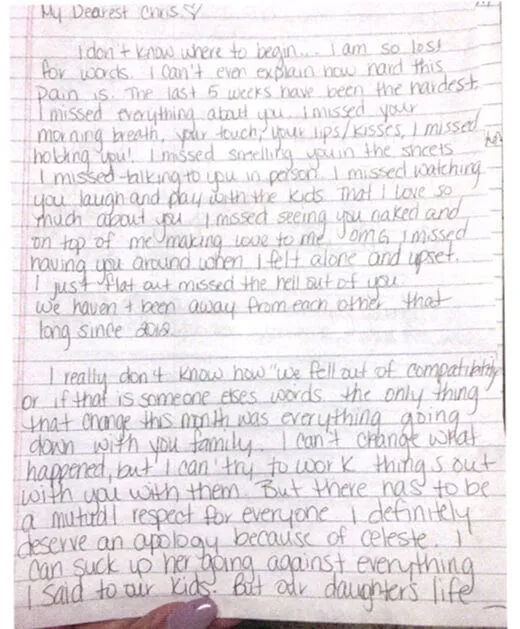 My Dearest Chris ♡
I don't know where to begin... I am so lost
for words. I can't even explain how hard this
pain is. The last 5 weeks have been the hardest.
I missed everything about you. I missed your
morning breath, your touch, your lips/kisses, I missed
holding you! I missed smelling you in the sheets
I missed talking to you in person. I missed watching
you laugh and play with the kids. That I love so
much about you. I missed seeing you naked and
on top of me making love to me. OMG I missed
having you around when I felt alone and upset.
I just flat out missed the hell out of you.
We haven't been away from each other that
long since 2012
I really don't know how "we fell out of compatibility
or if that is someone elses words. the only thing
that change this month was everything going
down with you family. I can't change what
happened, but I can try to work things out
with you with them. But there has to be
a mutural respect for everyone. I definitely
deserve an apology because of celeste. I
can suck up her going against everything
I said to our kids. But our daughters life